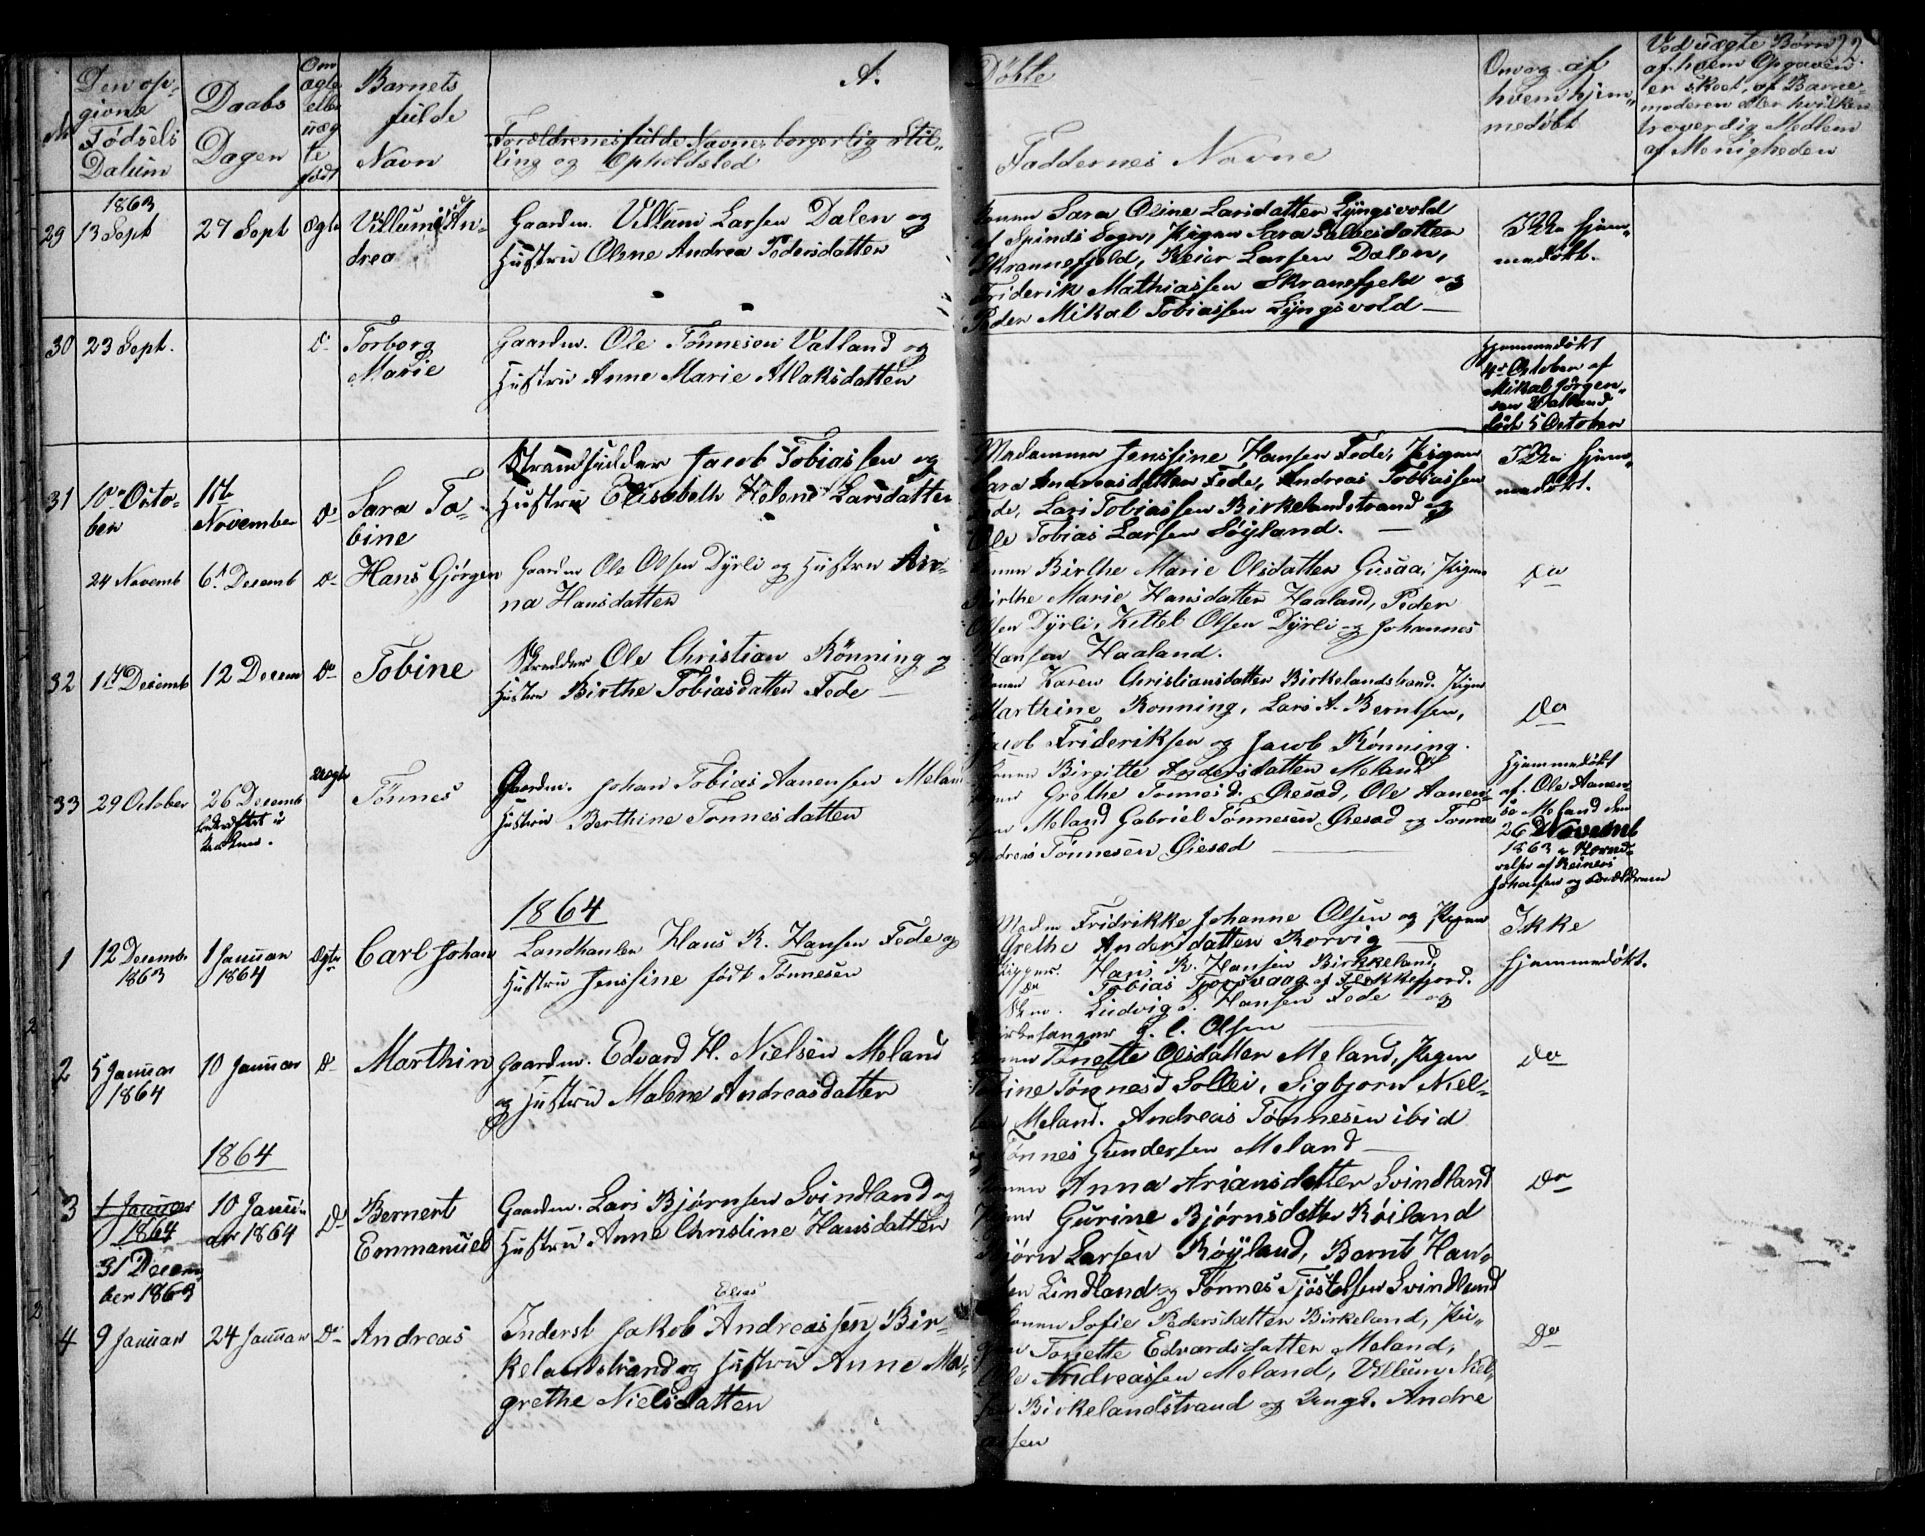 A. Döbte
99.
No
Den op-
givne
Fødsels
Datum
Daabs
Dagen
Om
ægte
eller
uæg
te
født
Barnets
fulde
Navn
Forældrenes fulde Navne borgerlig Stil-
ling og Opholdsted
Faddernes Navne
Om og af
hvem hjem-
medøbt
Ved uægte Børn
af hvem Opgaven
er skeet, af Barne-
moderen eller hvilken
troverdig Medlem
af Menigheden
1863
29 13 Sept 27 Sept Ægte Villumine An-
drea
Gaardm. Villum Larsen Dalen og
Hustru Olene Andrea Pedersdatter
Konen Sara Oline Larsdatter Lyngsvold
af Spinds Sogn, Pigen Sara Salvesdatter
Skrannefjeld, Reier Larsen Dalen,
Friderik Mathiassen Skranefjeld og
Peder Mikal Tobiassen Lyngsvold
Ikke hjem-
medøbt.
30 23 Sept. Do Torborg
Marie
Gaardm. Ole Tønnesen Vatland og
Hustru Anne Marie Atlaksdatter
Hjemmedøbt
4de October af
Mikal Jørgen-
sen Vatland
død 5 October
31 10de Octo-
ber
1ste
November
Do Sara To-
bine
Strandsidder Jacob Tobiassen og
Hustru Elisabeth Helene Larsdatter
Madamme Jenssine Hansen Fede, Pigen
Sara Andreasdatter Fede, Andreas Tobiassen
Fede, Lars Tobiassen Birkelandstrand og
Ole Tobias Larsen Søyland.
Ikke hjem-
medøbt.
24 Novemb 6te Decemb Do Hans Gjørgen
Gaardm Ole Olsen Dyrli og Hustru An-
na Hansdatter
Konen Birthe Marie Olsdatter Gusaa, Pigen
Birthe Marie Hansdatter Haaland, Peder
Olsen Dyrli, Kittel Olsen Dyrli og Johannes
Hansen Haaland.
Do
32 1ste Decemb 12 Decem Do Tobine
Skredder Ole Christian Rönning og
Hustru Birthe Tobiasdatter Fede
Konen Karen Christiansdatter Birkelandstrand Pigen
Marthine Ronning, Lars A. Berntsen,
Jacob Frideriksen og Jacob Rönning.
Do
33 29 October 26 Decemb
bekræftet i
Kirken.
Ægte
Tönnes
Gaardm. Johan Tobias Aanensen Meland
Hustru Berthine Tonnesdatter
Konen Birgitte Andersdatter Meland
Pigen Grethe Tonnesd. Øiesad, Ole Aanen-
sen Meland Gabriel Tönnesen Øiesad og Tonnes
Andreas Tönnesen Øiesad
Hjemmedøbt
af Ole Aanen-
se Meland den
26 Novemb
1863 i Nærvæ-
relse af Reiners
Johansen og Forældrene
1864
1 12 Decemb
1863
1 Januar
1864
Ægte Carl Johan
Landhanler Hans R. Hansen Fede og
Hustru Jenssine født Tönnesen
Madm Fridrikke Johanne Olsen og Pigen
Grethe Andersdatter Rorvig
Hans R. Hansen Birkkeland,
Do Tobias Tjorsvaag af Flekkefjord.
Ludvig S. Hansen Fede og
Kirkesanger G. C. Olsen
Ikke
hjemmedøbt.
2 5 Januar
1864
10 Januar Do Marthin
Gaardm. Edvard H. Nielsen Meland
og Hustru Malene Andreasdatter
Konen Tonette Olsdatter Meland, Pigen
Tønnesd Sollei, Sigbjorn Niel-
sen Meland. Andreas Tönnesen ibid
og Tönnes Gundersen Meland
Do
1864
3 1 Januar
1864
31 Decem-
ber 1863
10 Janu-
ar 1864
Do Bernert
Emmanuel
Gaardm. Lars Bjørnsen Svindland og
Hustru Anne Christine Hansdatter
Konen Anna Ariansdatter Svindland
Pigen Gurine Bjørnsdatter Röiland
Bjørn Larsen Røyland, Bernt Han-
sen Lindland og Tönnes Tjøstolsen Svindland
Do
4 9 Januar 24 Januar Do Andreas
Elias
Inderst Jakob Andreassen Bir-
kelandstrand og Hustru Anne Ma-
grethe Nielsdatter
Konen Sofie Pedersdatter Birkeland, Pi-
gen Tonette Edvardsdatter Meland,
Ole Andreassen Meland, Villum Niel-
sen Birkelandstrand og Ungk. Andre
assen
Do